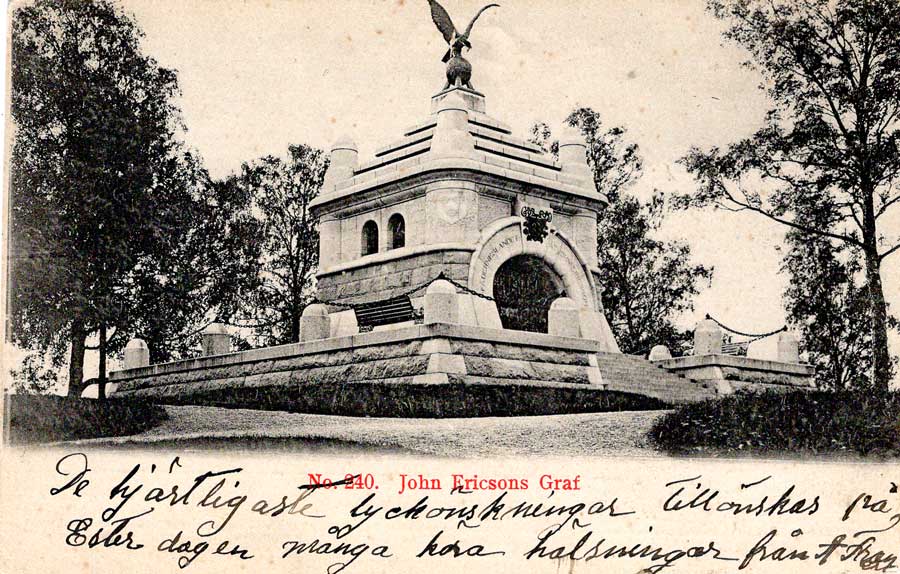 No. 240. John Ericsons Graf
De hjärtligaste lyckönskningar tillönskas på
Ester dagen många köra hälsningar från